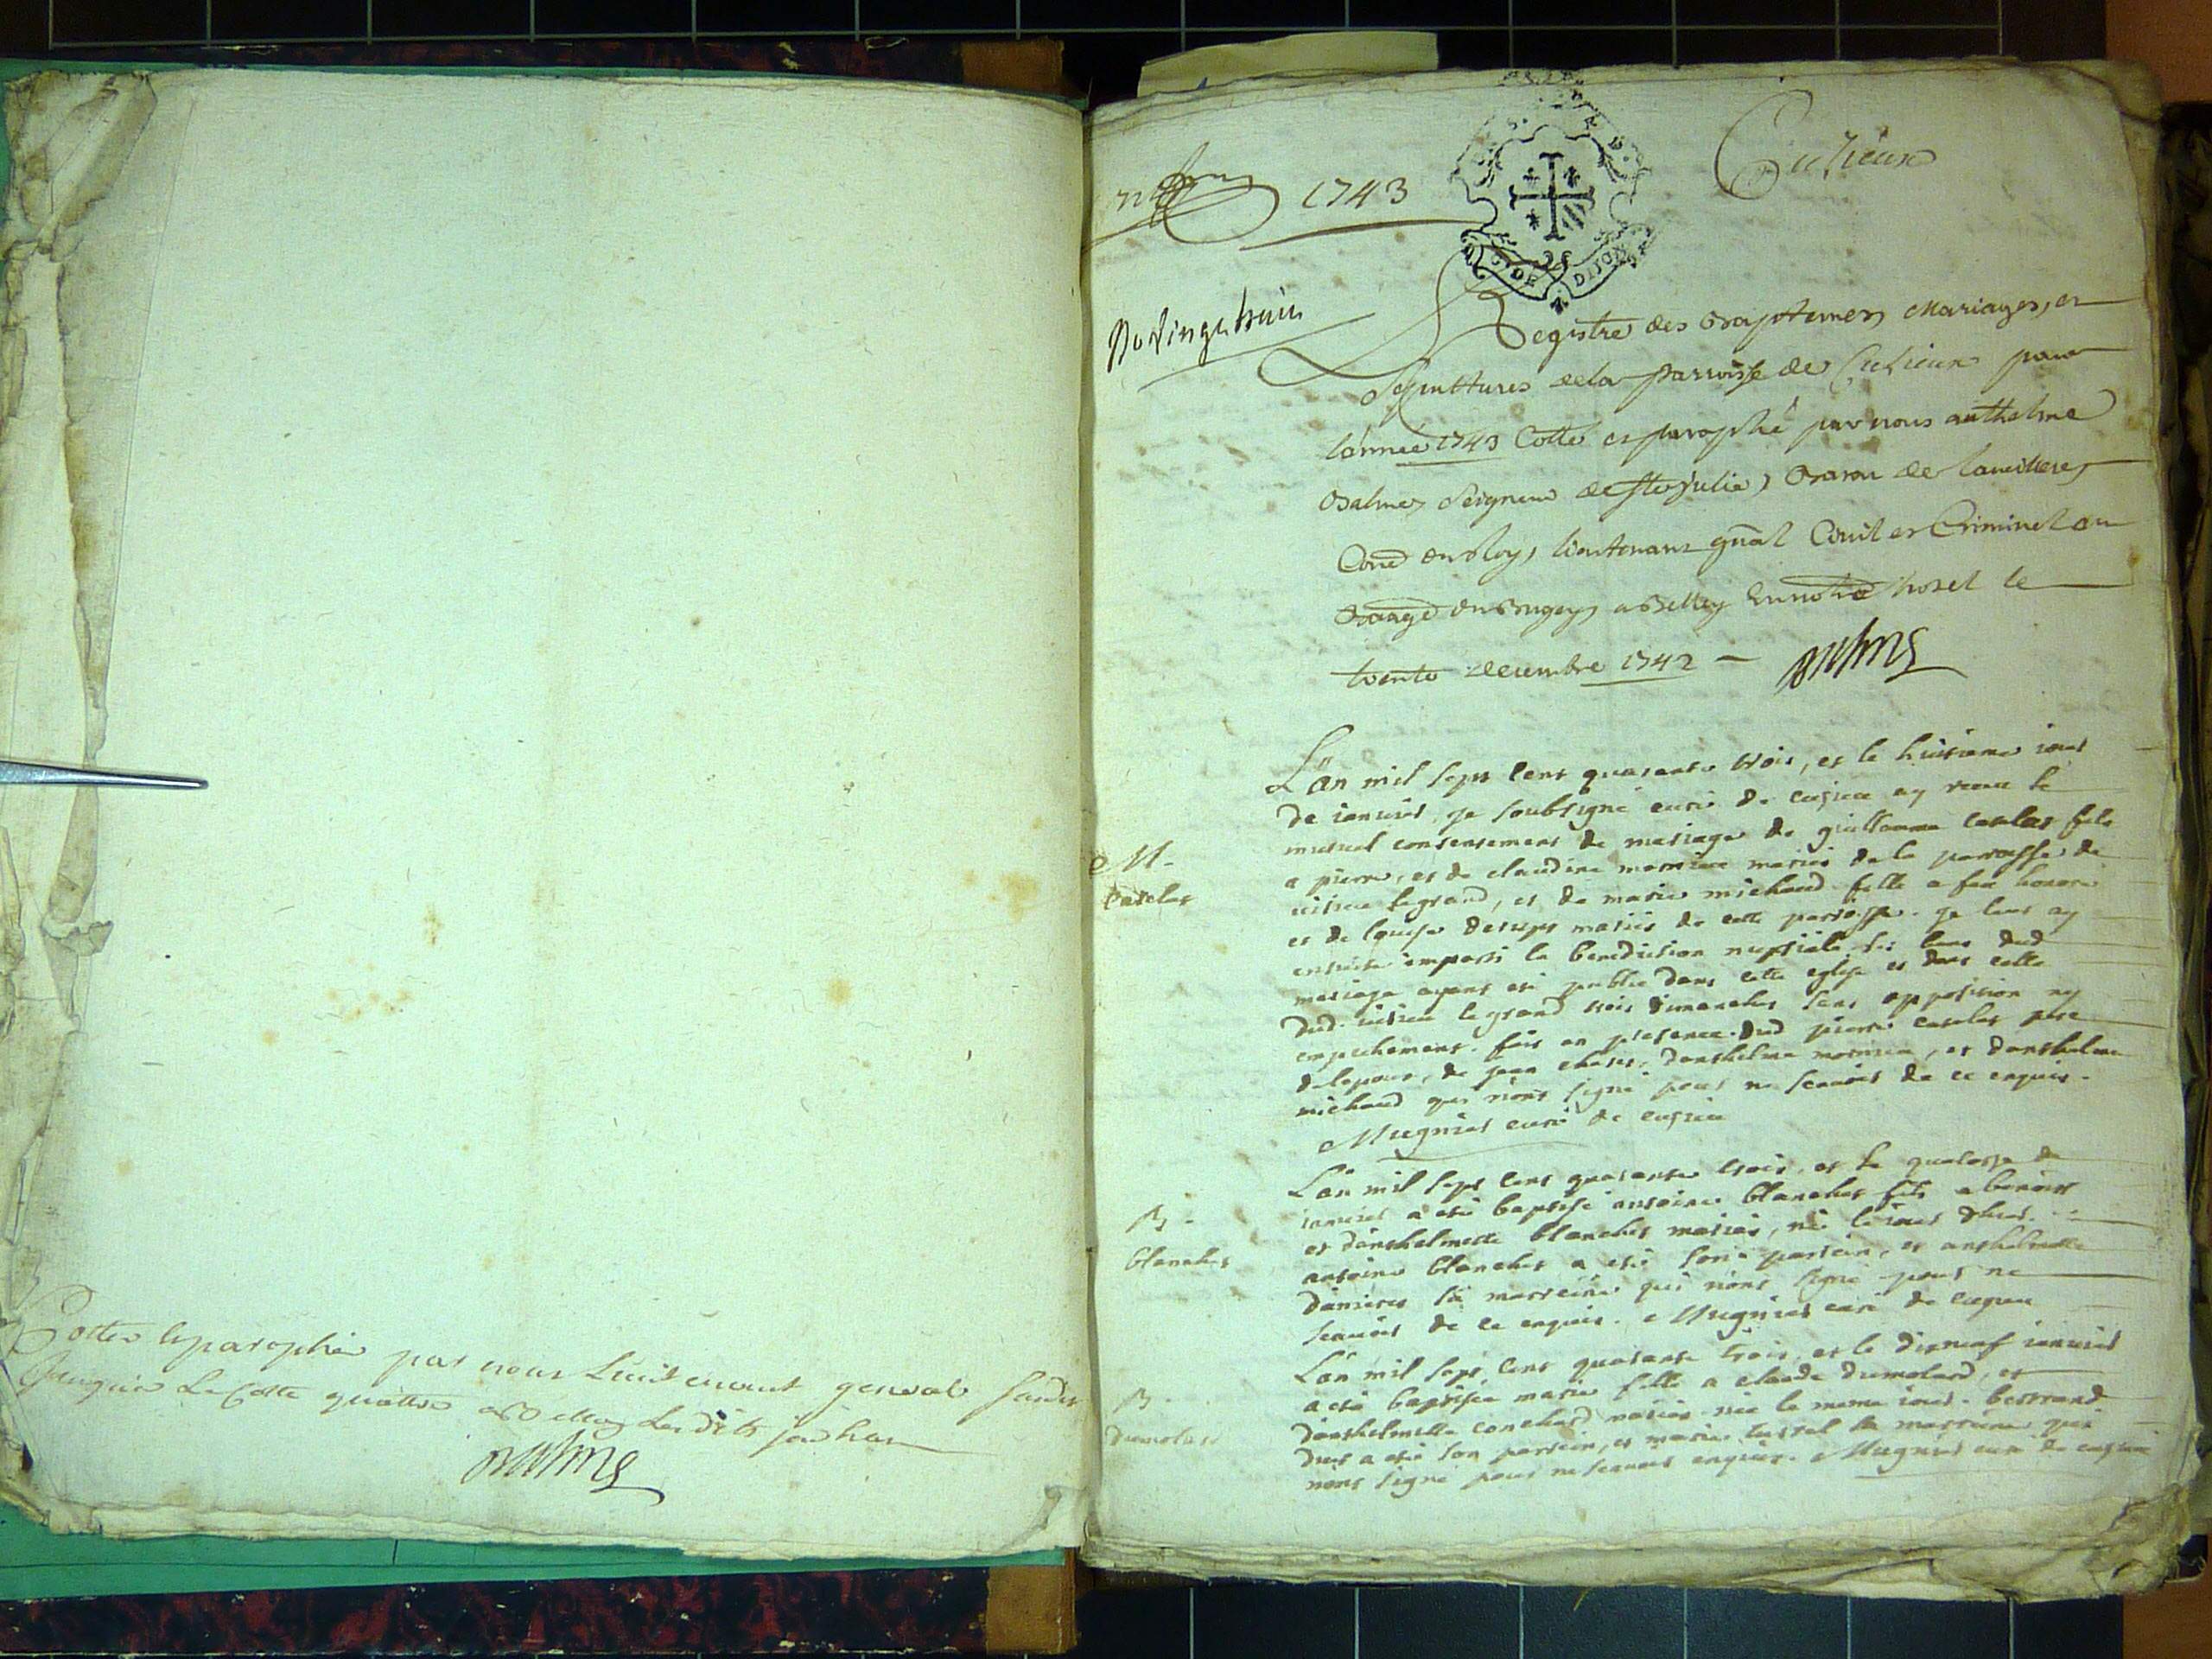 Cottes et paraphé par nous Lieutenant general
jusque La Cotte quattre a Belley Lesdits jour
Balme
1743
Cuzieux
DE DIJON
Registre des Baptemes Mariages, et
Sepultures de la Parroisse de Cuzieux pour
l'année 1743 Cotté et paraphé par nous anthelme
Balme, Seigneur de Ste Julie, Baron de
Cons.er du Roy, lieutenant gñal Civil et Criminel au
Bailliage du Bugey a Belley En notre hotel le
trente decembre 1742 — Balme
L'an mil sept cent quarante trois, et le huitieme iour
de ianvier, je soubsigné curé de cusieu ay receu le
mutuel consentement de mariage de guillaume caselas fils
a pierre, et de claudine mariés de la paroisse de
virieu le grand, et de marie michaud fille a feu
et de louyse mariés de cette parroisse. je leur ay
ensuite imparti la benediction nuptiale, les bans dud
mariage ayant été publié dans cette eglise et dans celle
dud. virieu le grand trois dimanches sans opposition ny
empechement. fait en presence dud pierre caselas pere
de lepoux, de jean d'anthelme et d'anthelme
michaud qui n'ont signé pour ne scavoir de ce enquis.
Mugnier curé de cusieu
M.
caselas
L'an mil sept cent quarante trois, et le quatorze de
ianvier a été baptisé antoine blanchet fils a benoist
et d'anthelmette blanchet mariés, né le iour
antoine blanchet a été son parrein, et anthelmette
sa marreine qui n'ont signé pour ne
scavoir de ce enquis. Mugnier curé de cusieu
B.
blanchet
L'an mil sept cent quarante trois, et le dixneuf ianvier
a été baptisée marie fille a claude dumolard, et
d'anthelmette mariés née le meme iour. bertrand
a été son parrein, et marie sa marreine qui
n'ont signé pour ne scavoir enquis. Mugnier curé de cusieu
B.
dumolard